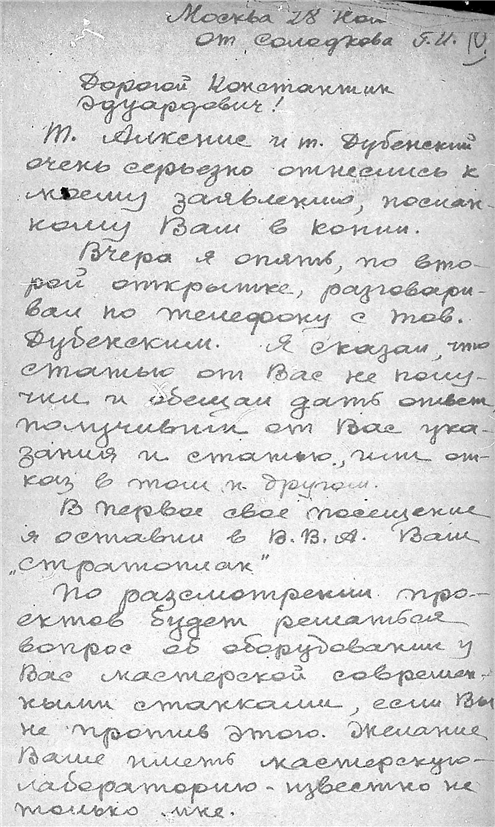 Москва 28 Ноя
от Солодкова Г.И. IV
Дорогой Константин
Эдуардович!
Т. Алкснис и т. Дубенский
очень серьезно отнеслись к
моему заявлению, послан-
ному Вам в копии.
Вчера я опять, по вто-
рой открытке, разговари-
вал по телефону с тов.
Дубенским. Я сказал, что
статью от Вас не полу-
чил и обещал дать ответ,
получивши от Вас ука-
зания и статью, или от-
каз в том и другом.
В первое свое посещение
я оставил в В.В.А. Ваш
„стратоплан"
По разсмотрении про-
ектов будет решаться
вопрос об оборудовании у
Вас мастерской современ-
ными станками, если Вы
не против этого. Желание
Ваше иметь мастерскую-
лабораторию - известно не
только мне.